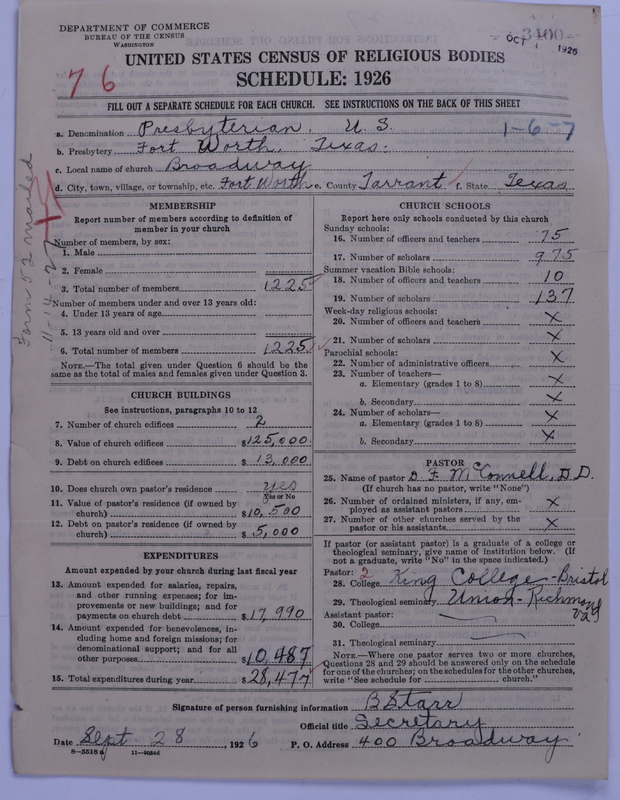 DEPARTMENT OF COMMERCE
BUREAU OF THE CENSUS
WASHINGTON
3400
OCT 1 1926
UNITED STATES CENSUS OF RELIGIOUS BODIES
SCHEDULE: 1926
76
FILL OUT A SEPARATE SCHEDULE FOR EACH CHURCH. SEE INSTRUCTIONS ON THE BACK OF THIS SHEET
a. Denomination Presbyterian, U.S. 1-6-7
b. Presbytery Fort Worth, Texas.
c. Local name of church Broadway
d. City, town, village, or township, etc. Fort Worth e. County Tarrant f. State Texas
Form 52 mailed
11-14-27
MEMBERSHIP
Report number of members according to definition of
member in your church
Number of members, by sex:
1. Male
2. Female
3. Total number of members 1225
Number of members under and over 13 years old:
4. Under 13 years of age
5. 13 years old and over
6. Total number of members 1225
NOTE.—The total given under Question 6 should be
same as the total of males and females given under Question 3.
CHURCH BUILDINGS
See instructions, paragraphs 10 to 12
7. Number of church edifices 2
8. Value of church edifices $125,000.
9. Debt on church edifices $13,000
10. Does church own pastor's residence yes
Yes or No
11. Value of pastor's residence (if owned by
church) $10,500
12. Debt on pastor's residence (if owned by
church) $5,000
EXPENDITURES
Amount expended by your church during last fiscal year
13. Amount expended for salaries, repairs,
and other running expenses; for im-
provements or new buildings; and for
payments on church debt $17,990
14. Amount expended for benevolences, in-
cluding home and foreign missions; for
denominational support; and for all
other purposes $10,487
15. Total expenditures during year $28,477
CHURCH SCHOOLS
Report here only schools conducted by this church
Sunday schools:
16. Number of officers and teachers 75
17. Number of scholars 975
Summer vacation Bible schools:
18. Number of officers and teachers 10
19. Number of scholars 137
Week-day religious schools:
20. Number of officers and teachers X
21. Number of scholars X
Parochial schools:
22. Number of administrative officers X
23. Number of teachers—
a. Elementary (grades 1 to 8) X
b. Secondary X
24. Number of scholars—
a. Elementary (grades 1 to 8) X
b. Secondary X
PASTOR
25. Name of pastor D. F. McConnell, D.D.
(If church has no pastor, write "None")
26. Number of ordained ministers, if any, em-
ployed as assistant pastors X
27. Number of other churches served by the
pastor or his assistants X
If pastor (or assistant pastor) is a graduate of a college or
theological seminary, give name of institution below. (If
not a graduate, write "No" in the space indicated.)
Pastor: 2
28. College King College-Bristol
29. Theological seminary Union-Richmond
Va
Assistant pastor:
30. College
31. Theological seminary
NOTE.—Where one pastor serves two or more churches,
Questions 28 and 29 should be answered only on the schedule
for one of the churches; on the schedules for the other churches,
write "See schedule for church."
Signature of person furnishing information B Starr
Official title Secretary
Date Sept. 28, 1926 P. O. Address 400 Broadway
8—5518 a